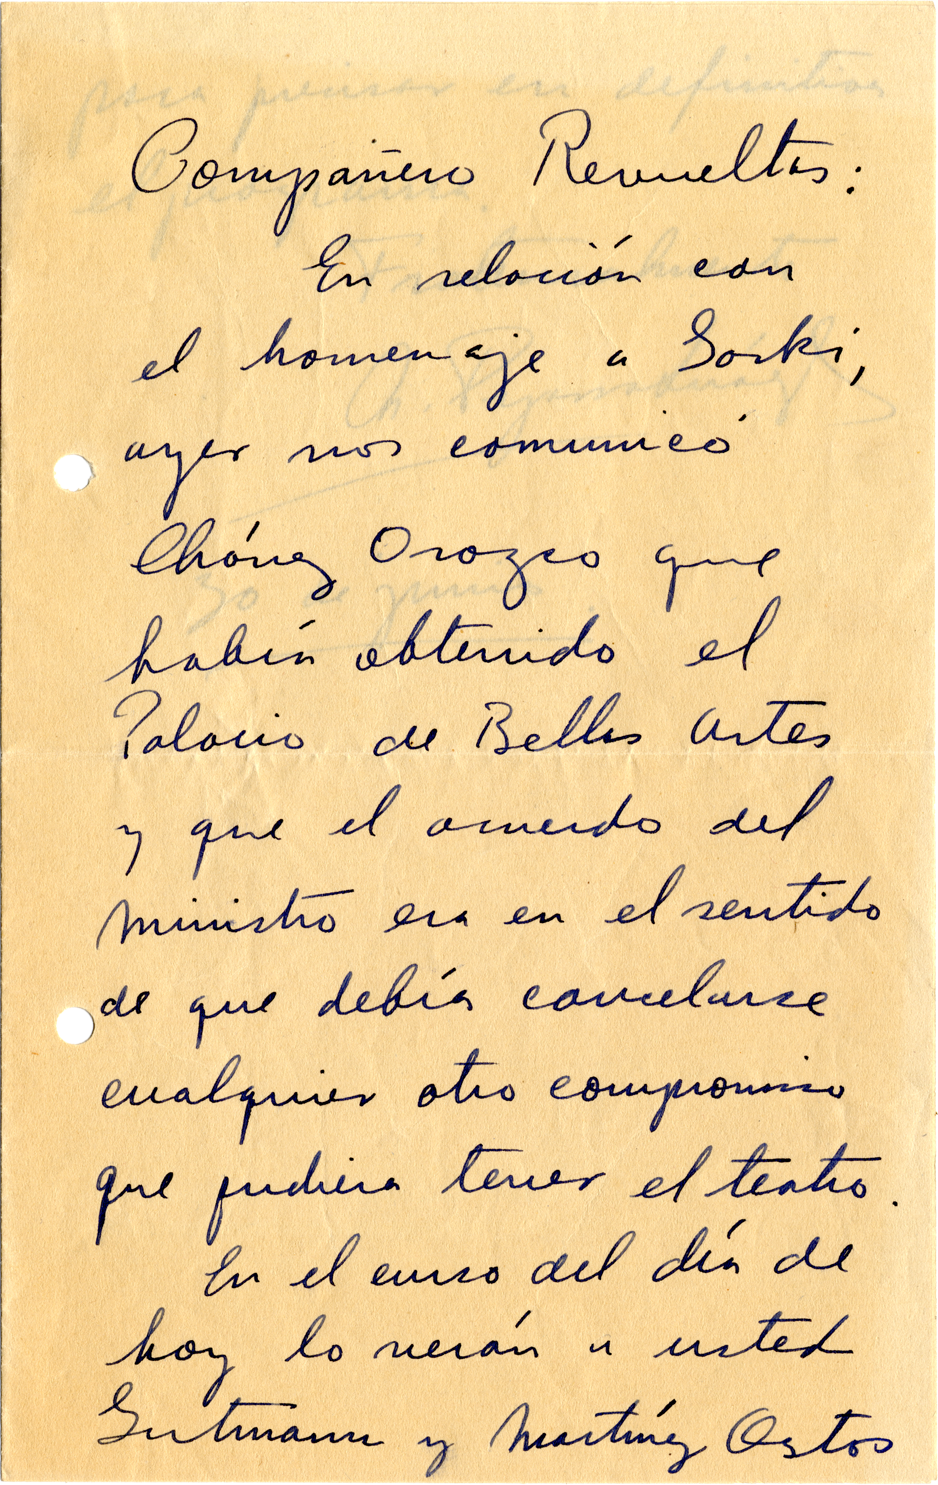 Compañero Revueltas:
En relación con
el homenaje a Gorki,
ayer nos comunicó
Chávez Orozco que
había obtenido el
Palacio de Bellas Artes
y que el acuerdo del
ministro era en el sentido
de que debía cancelarse
cualquier otro compromiso
que pudiera tener el teatro.
En el curso del día de
hoy lo verán a usted
Gutmann y Martínez Ostos